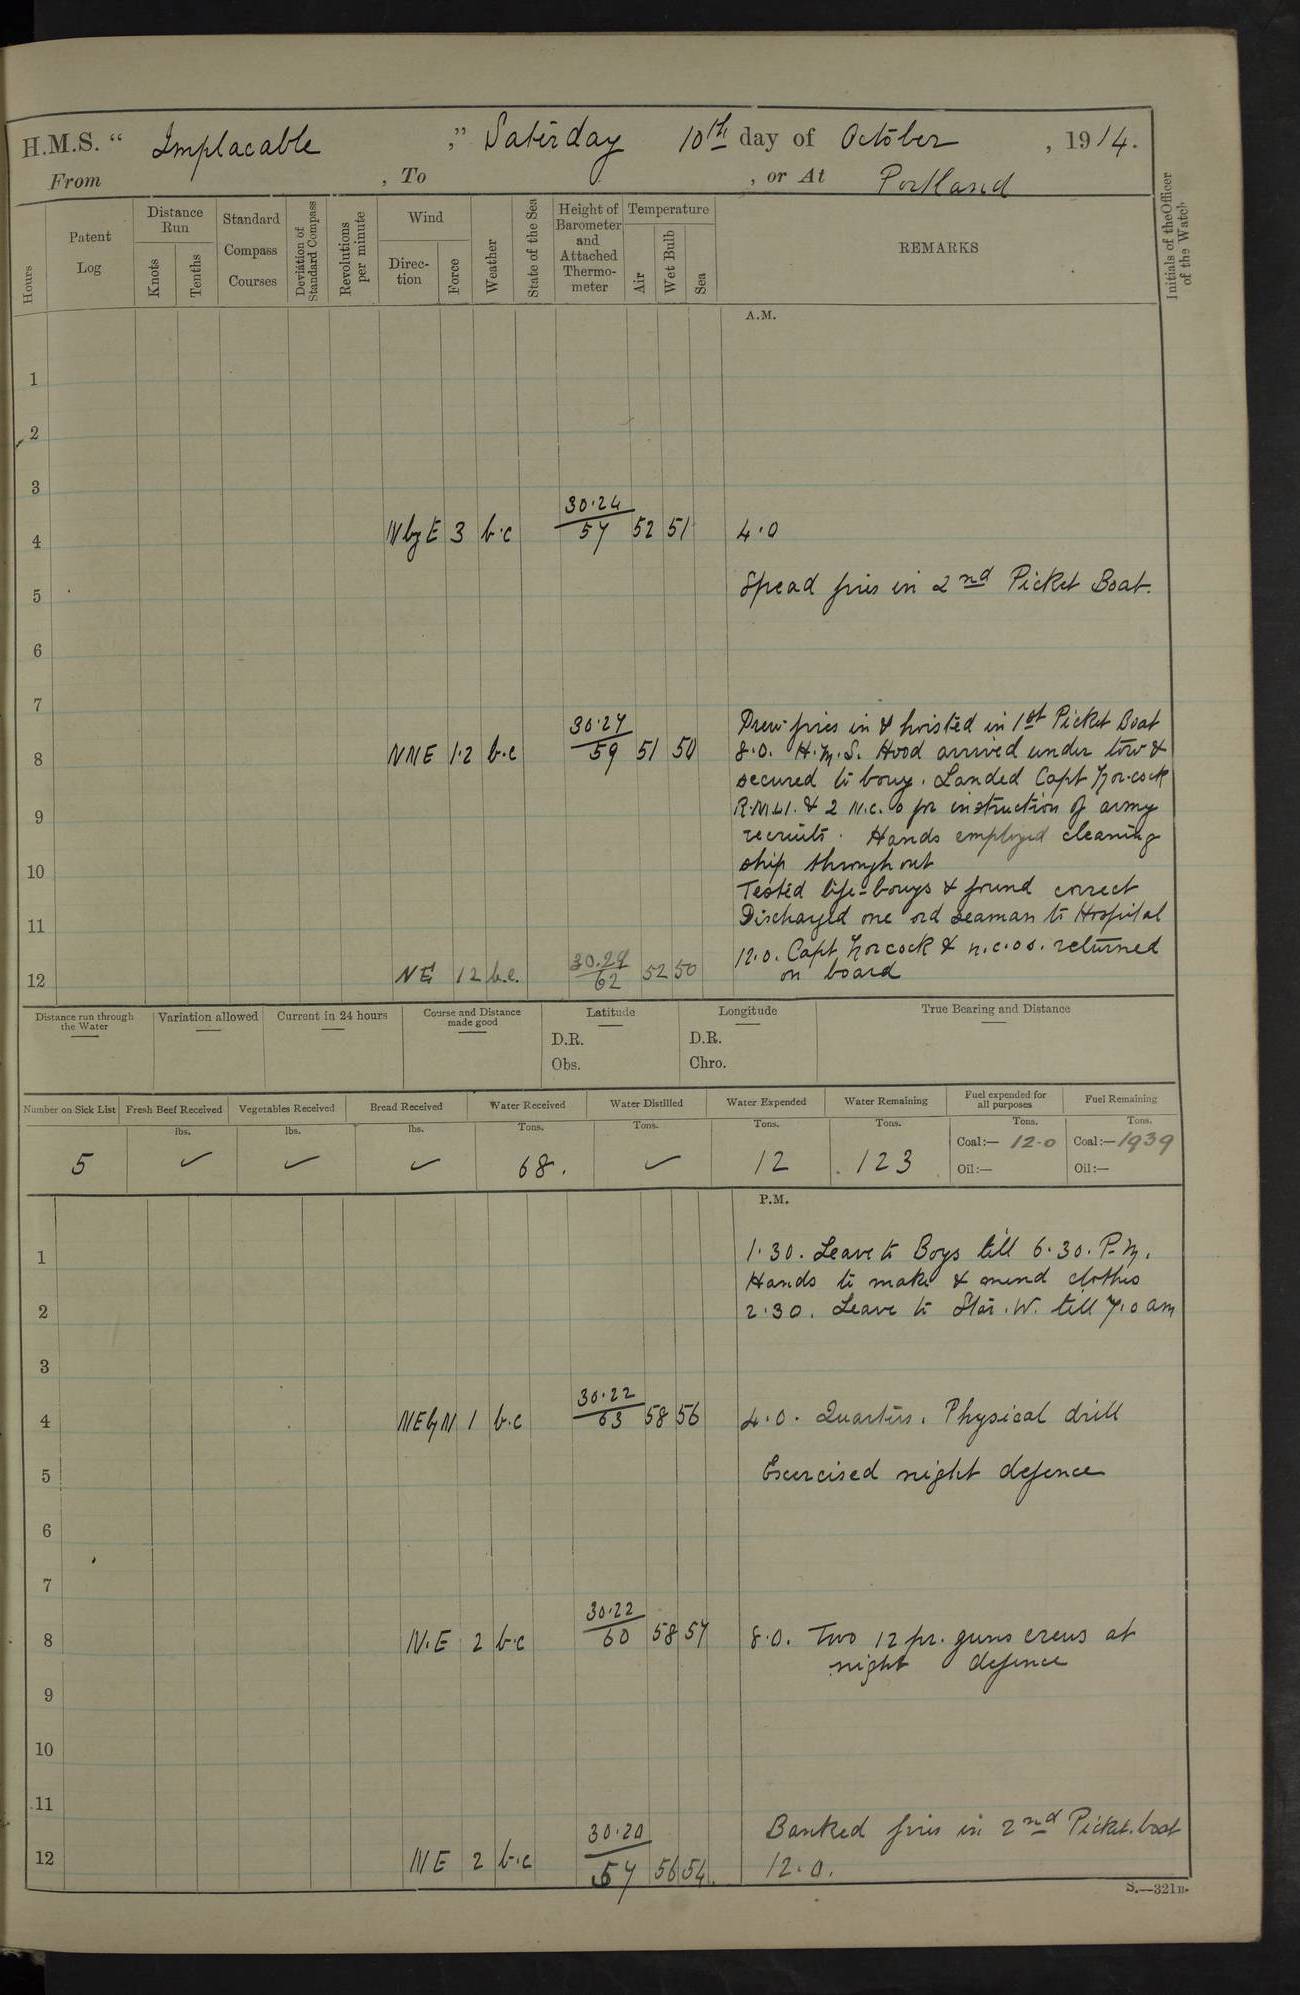 H.M.S. " Implacable ," Saterday 10th day of October , 1914.
From , To , or At Portland
Hours
Patent Log
Distance Run
Knots
Tenths
Standard Compass Courses
Deviation of Standard Compass
Revolutions per minute
Wind
Direc-tion
Force
Weather
State of the Sea
Height of Barometer and Attached Thermo-meter
Temperature
Air
Wet Bulb
Sea
REMARKS
Initials of the Officer of the Watch
A.M.
1
2
3
30.24
4 N by E 3 b.c 57 52 51 4.0
5 Spread fires in 2nd Picket Boat.
6
7
Drew fires in & hoisted in 1st Picket Boat
30.27
8 NNE 1.2 b.c 59 51 50 8.0. H.M.S. Hood arrived under tow &
secured to bouy. Landed Capt Norcock
9 R.M.L.I. & 2 N.C.O for instruction of army
recruits. Hands employed cleaning
10 ship throughout
Tested life-bouys & found correct
11 Discharged one ord seaman to Hospital
30.29
12 NE 1 2 b.c. 62 52 50 12.0. Capt Norcock & n.c.os. returned
on board
Distance run through the Water
Variation allowed
Current in 24 hours
Course and Distance made good
Latitude
D.R.
Obs.
Longitude
D.R.
Chro.
True Bearing and Distance
Number on Sick List Fresh Beef Received Vegetables Received Bread Received Water Received Water Distilled Water Expended Water Remaining Fuel expended for all purposes Fuel Remaining
lbs. lbs. lbs. Tons. Tons. Tons. Tons. Tons. Tons.
5 ✓ ✓ ✓ 68. ✓ 12 123 Coal:— 12.0 Coal:— 1939
Oil:— Oil:—
P.M.
1 1.30. Leave to Boys till 6.30. P.M.
Hands to make & mend clothes
2 2.30. Leave to Star. W. till 7.0 am
3
30.22
4 NEbyN 1 b.c 63 58 56 4.0. Quarters. Physical drill
5 Exercised night defence
6
7
30.22
8 N.E 2 b.c 60 58 57 8.0. Two 12 pr. guns crews at
night defence
9
10
11
30.20 Banked fires in 2nd Picket.boat
12 NE 2 b.c 57 56 54. 12.0.
S.—321B.